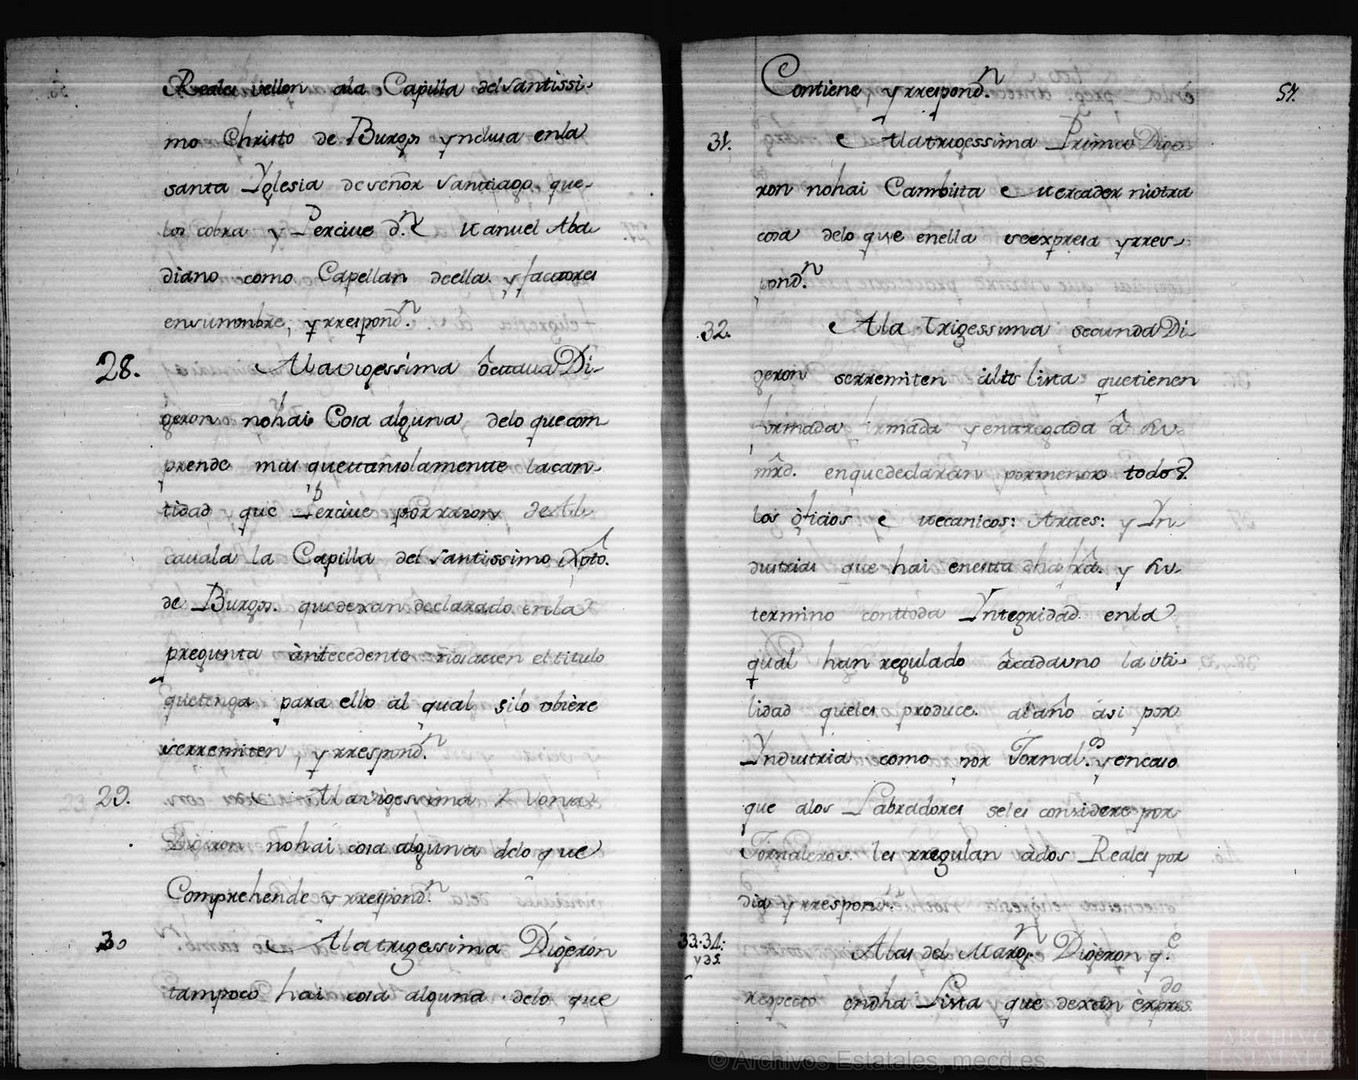 Reales vellon ala Capilla del Santissi-
mo Christo de Burgos ynclusa enla
santa Yglesia de señor Santiago que-
los cobra y Percive d.n Manuel Aba-
diano como Capellan deella y factores
ensu nombre, y rrespond.n
28. Ala viogessima octtava Di-
geron nohai Cosa alguna delo que com
prende mas quettansolamentte lacan-
tidad que Percive por razon de Al-
cauala la Capilla del Santissimo Xpto.
de Burgos. quedexan declarado enla
pregunta antecedente el titulo
quetenga para ello al qual silo obiere
serremiten y rrespond.n
29. Ala vigessima Nona
Digeron nohai cosa alguna delo que
Comprehende y rrespond.n
30 Ala trigessima Digeron
tampoco hai cosa alguna delo que
57.
Contiene y rrespond.n
31. Ala trigessima Primera Dige-
ron nohai Cambista Mercader niotra
cosa delo que enella seexpresa y rres-
pond.n
32. Ala Trigessima secunda Di-
geron serremiten ala lista quetienen
formada firmada y enttregada a su
mrd. enquedeclaran pormenor todos
los oficios mecanicos: Artes: y Yn
dustrias que hai enesta dha frâ. y su
termino conttoda Yntegridad enla
qual han regulado àcadauno la uti-
lidad queles produce al año ási por
Yndustria como por Jornal. y encaso
que alos Labradores seles considere por
Jornaleros les rregulan ádos Reales por
dia y rrespond.n
33.34. y 35. Alas del Marg.n Digeron q.e
respecto endha Lista que dexan èxpres.do
© Archivos Estatales, mecd.es
A E
ARCHIVOS
ESTATALES